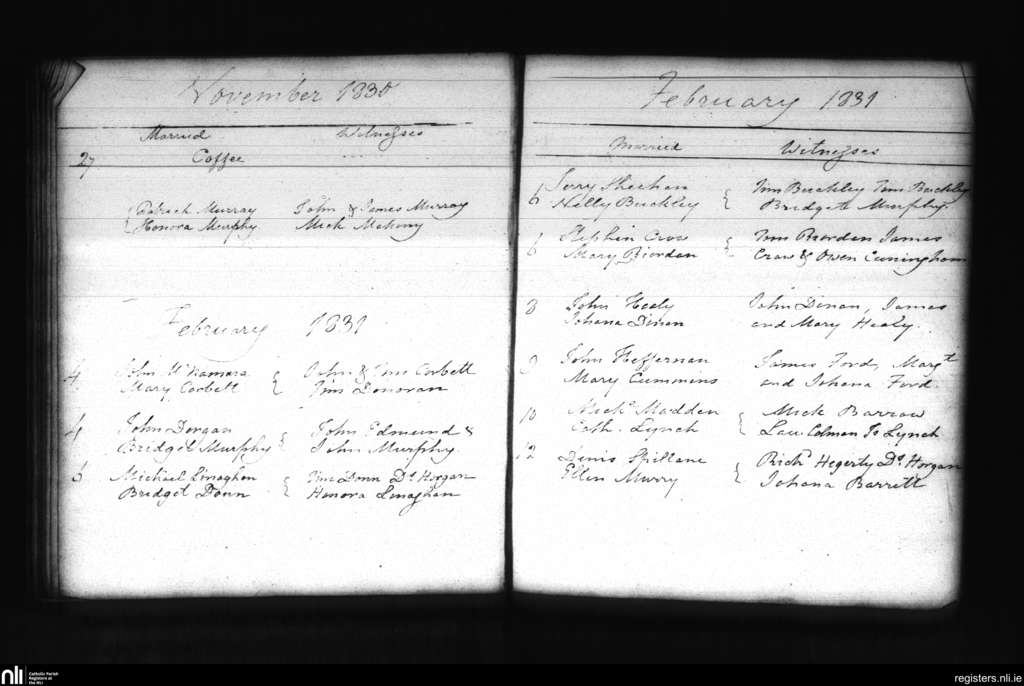 November 1830
Married Witnesses
27 Coffee
Patrick Murray John & James Murray
Honora Murphy Mick Mahony
February 1831
4 John McNamara John & Corbett
Mary Corbett Tim Donovan
4 John Dorgan John Edmund &
Bridget Murphy John Murphy
5 Michael Linaghan Tim Donn Ds Horgan
Bridget Donn Honora Linaghan
February 1831
Married Witnesses
6 Jerry Sheehan Tim Buckley Tom Buckley
Nelly Buckley Bridget Murphy.
6 Stephin Crow Tom Riordan James
Mary Riordan Crow & Owen Cuningham
8 John Healy John Dinan, James
Johana Dinan and Mary Healy.
9 John Heffernan James Ford, Margt
Mary Cummins and Johana Ford.
10 Mick Madden Mick Barrow
Cath. Lynch Lau Colman Lynch
12 Dinis Spillane Rich Hegerty Ds Horgan
Ellen Murry Johana Barrett
nli Catholic Parish
Registers at
the NLI
registers.nli.ie